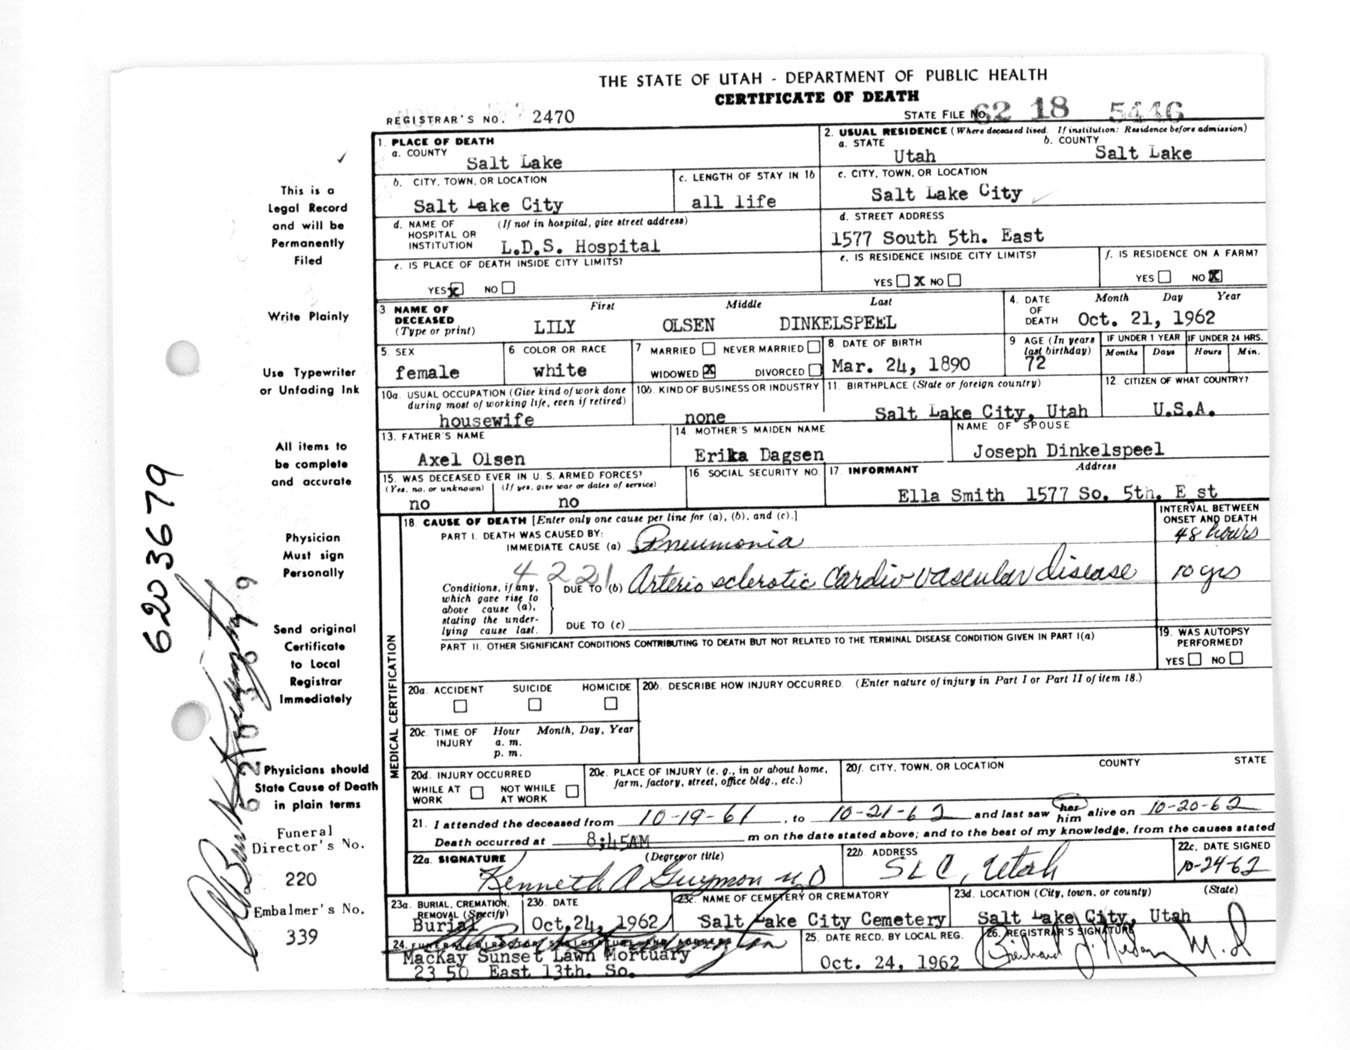 THE STATE OF UTAH - DEPARTMENT OF PUBLIC HEALTH
CERTIFICATE OF DEATH
REGISTRAR'S NO. 2470
STATE FILE No. 62 18 5446
1. PLACE OF DEATH
a. COUNTY
Salt Lake
2. USUAL RESIDENCE (Where deceased lived. If institution: Residence before admission)
a. STATE
Utah
b. COUNTY
Salt Lake
b. CITY, TOWN, OR LOCATION
Salt Lake City
c. LENGTH OF STAY IN 1b
all life
c. CITY, TOWN, OR LOCATION
Salt Lake City
d. NAME OF HOSPITAL OR INSTITUTION
(If not in hospital, give street address)
L.D.S. Hospital
d. STREET ADDRESS
1577 South 5th. East
e. IS PLACE OF DEATH INSIDE CITY LIMITS?
YES X NO
e. IS RESIDENCE INSIDE CITY LIMITS?
YES X NO
f. IS RESIDENCE ON A FARM?
YES NO X
3. NAME OF DECEASED (Type or print)
First Middle Last
LILY OLSEN DINKELSPEEL
4. DATE OF DEATH
Month Day Year
Oct. 21, 1962
5. SEX
female
6 COLOR OR RACE
white
7 MARRIED NEVER MARRIED
WIDOWED X DIVORCED
8. DATE OF BIRTH
Mar. 24, 1890
9 AGE (In years last birthday)
72
IF UNDER 1 YEAR
Months Days
IF UNDER 24 HRS.
Hours Min.
10a. USUAL OCCUPATION (Give kind of work done
during most of working life, even if retired)
housewife
10b. KIND OF BUSINESS OR INDUSTRY
none
11 BIRTHPLACE (State or foreign country)
Salt Lake City, Utah
12. CITIZEN OF WHAT COUNTRY?
U.S.A.
13. FATHER'S NAME
Axel Olsen
14 MOTHER'S MAIDEN NAME
Erika Dagsen
NAME OF SPOUSE
Joseph Dinkelspeel
15. WAS DECEASED EVER IN U. S. ARMED FORCES?
(Yes, no, or unknown) (If yes, give war or dates of service)
no no
16 SOCIAL SECURITY NO.
17 INFORMANT Address
Ella Smith 1577 So. 5th, E st
18. CAUSE OF DEATH [Enter only one cause per line for (a), (b), and (c).]
INTERVAL BETWEEN ONSET AND DEATH
PART I. DEATH WAS CAUSED BY:
IMMEDIATE CAUSE (a) Pneumonia
48 hours
4221
Conditions, if any, which gave rise to above cause (a), stating the underlying cause last.
DUE TO (b) Arterio sclerotic Cardio vascular disease
10 yrs
DUE TO (c)
PART II. OTHER SIGNIFICANT CONDITIONS CONTRIBUTING TO DEATH BUT NOT RELATED TO THE TERMINAL DISEASE CONDITION GIVEN IN PART I(a)
19. WAS AUTOPSY PERFORMED?
YES NO
MEDICAL CERTIFICATION
20a. ACCIDENT SUICIDE HOMICIDE
20b. DESCRIBE HOW INJURY OCCURRED. (Enter nature of injury in Part I or Part II of item 18.)
20c. TIME OF INJURY
Hour Month, Day, Year
a. m.
p. m.
20d. INJURY OCCURRED
WHILE AT WORK NOT WHILE AT WORK
20e. PLACE OF INJURY (e. g., in or about home,
farm, factory, street, office bldg., etc.)
20f. CITY, TOWN, OR LOCATION COUNTY STATE
21. I attended the deceased from 10-19-61, to 10-21-62 and last saw her him alive on 10-20-62
Death occurred at 8:45AM m on the date stated above; and to the best of my knowledge, from the causes stated
22a. SIGNATURE (Degree or title)
Kenneth A Guymon MD
22b. ADDRESS
SLC, Utah
22c. DATE SIGNED
10-24-62
23a. BURIAL, CREMATION, REMOVAL (Specify)
Burial
23b. DATE
Oct.24, 1962
23c. NAME OF CEMETERY OR CREMATORY
Salt Lake City Cemetery
23d. LOCATION (City, town, or county) (State)
Salt Lake City, Utah
24. FUNERAL DIRECTOR'S SIGNATURE AND ADDRESS
MacKay Sunset Lawn Mortuary
23 50 East 13th. So.
25. DATE RECD. BY LOCAL REG.
Oct. 24, 1962
26. REGISTRAR'S SIGNATURE
M. D
This is a
Legal Record
and will be
Permanently
Filed
Write Plainly
Use Typewriter
or Unfading Ink
All items to
be complete
and accurate
Physician
Must sign
Personally
Send original
Certificate
to Local
Registrar
Immediately
Physicians should
State Cause of Death
in plain terms
Funeral
Director's No.
220
Embalmer's No.
339
6203679